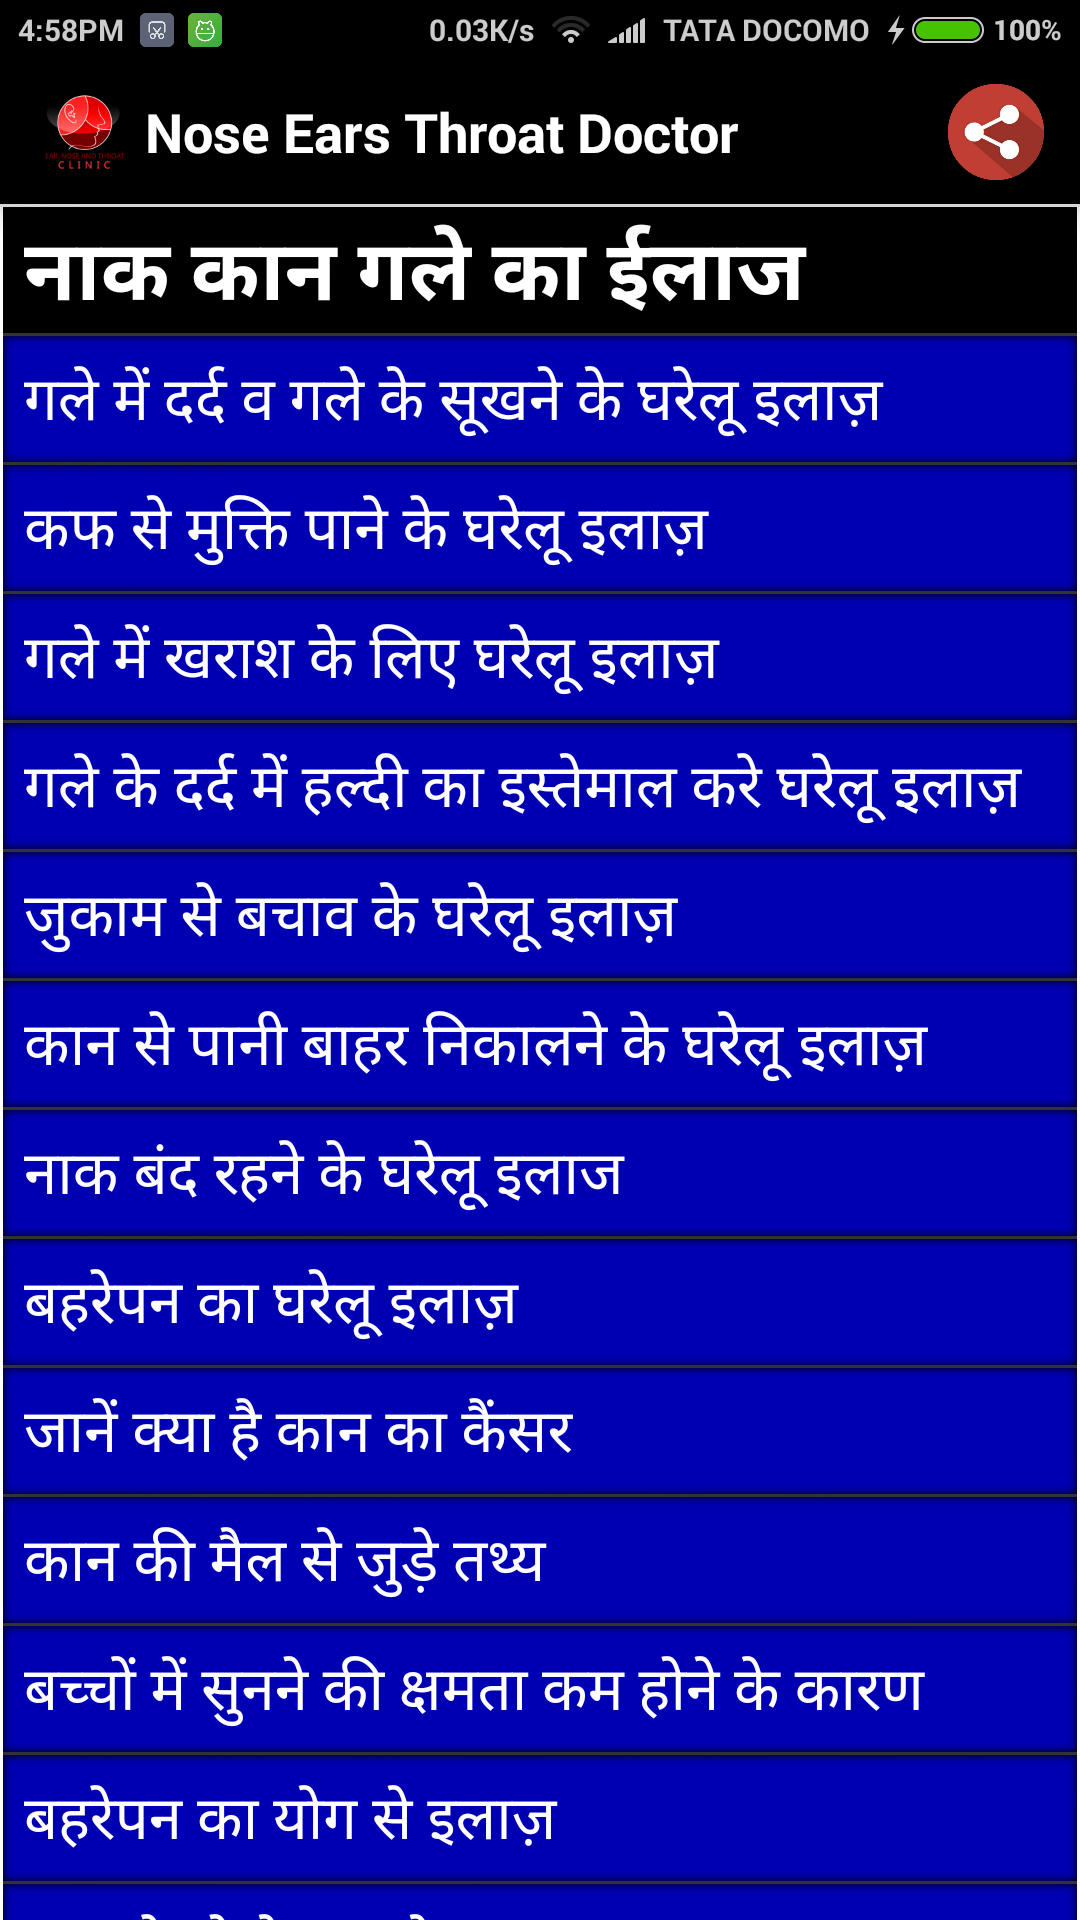 4:58PM 0.03K/s TATA DOCOMO 100%
Nose Ears Throat Doctor
EAR, NOSE AND THROAT
CLINIC
नाक कान गले का ईलाज
गले में दर्द व गले के सूखने के घरेलू इलाज़
कफ से मुक्ति पाने के घरेलू इलाज़
गले में खराश के लिए घरेलू इलाज़
गले के दर्द में हल्दी का इस्तेमाल करे घरेलू इलाज़
जुकाम से बचाव के घरेलू इलाज़
कान से पानी बाहर निकालने के घरेलू इलाज़
नाक बंद रहने के घरेलू इलाज
बहरेपन का घरेलू इलाज़
जानें क्या है कान का कैंसर
कान की मैल से जुड़े तथ्य
बच्चों में सुनने की क्षमता कम होने के कारण
बहरेपन का योग से इलाज़